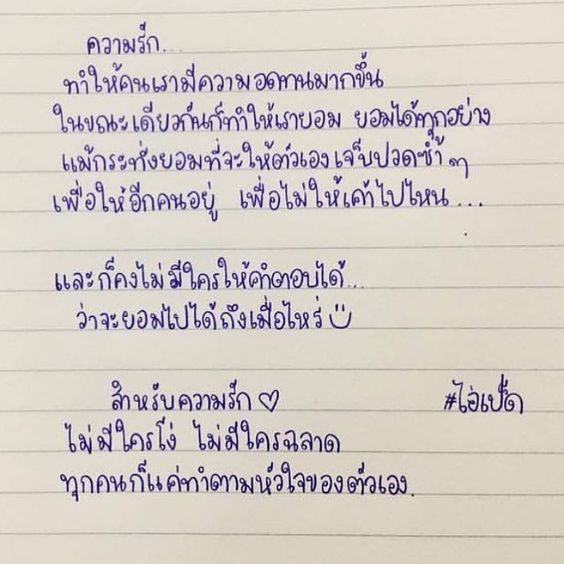 ความรัก...
ทำให้คนเรามีความอดทนมากขึ้น
ในขณะเดียวกันก็ทำให้เรายอม ยอมได้ทุกอย่าง
แม้กระทั่งยอมที่จะให้ตัวเองเจ็บปวดซ้ำๆ
เพื่อให้อีกคนอยู่ เพื่อไม่ให้เค้าไปไหน...
และก็คงไม่มีใครให้คำตอบได้...
ว่าจะยอมไปได้ถึงเมื่อไหร่
สำหรับความรัก♡ #ไอ่เป็ด
ไม่มีใครโง่ ไม่มีใครฉลาด
ทุกคนก็แค่ทำตามหัวใจของตัวเอง.